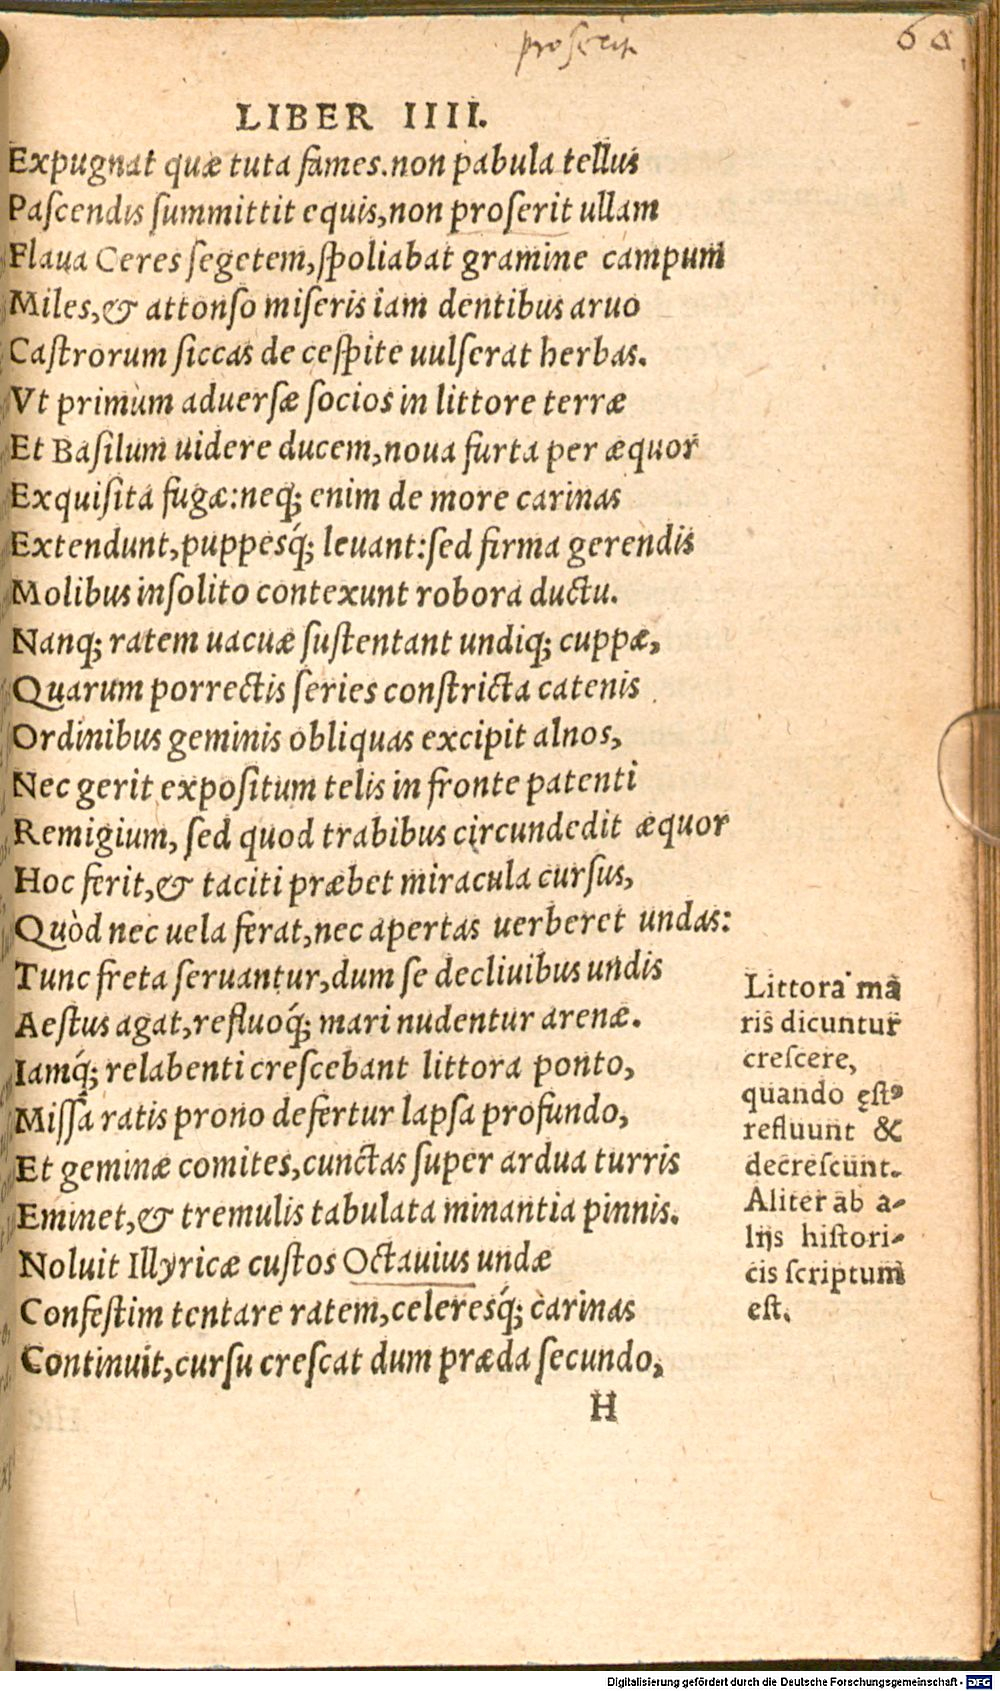 proserit
60
LIBER IIII.
Expugnat quæ tuta fames.non pabula tellus
Paſcendis ſummittit equis,non proſerit ullam
Flaua Ceres ſegetem,ſpoliabat gramine campum
Miles,& attonſo miſeris iam dentibus aruo
Caſtrorum ſiccas de ceſpite uulſerat herbas.
Vt primùm aduerſæ ſocios in littore terræ
Et Baſilum uidere ducem,noua furta per æquor
Exquiſita fugæ:neq; enim de more carinas
Extendunt,puppesq́; leuant:ſed firma gerendis
Molibus inſolito contexunt robora ductu.
Nanq; ratem uacuæ ſuſtentant undiq; cuppæ,
Quarum porrectis ſeries conſtricta catenis
Ordinibus geminis obliquas excipit alnos,
Nec gerit expoſitum telis in fronte patenti
Remigium, ſed quod trabibus circundedit æquor
Hoc ferit,& taciti præbet miracula curſus,
Quòd nec uela ferat,nec apertas uerberet undas:
Tunc freta ſeruantur,dum ſe decliuibus undis
Aeſtus agat,refluoq́; mari nudentur arenæ.
Iamq́; relabenti creſcebant littora ponto,
Miſſa ratis prono defertur lapſa profundo,
Et geminæ comites,cunctas ſuper ardua turris
Eminet,& tremulis tabulata minantia pinnis.
Noluit Illyricæ cuſtos Octauius undæ
Confeſtim tentare ratem,celeresq́; carinas
Continuit,curſu creſcat dum præda ſecundo,
H
Littora mã
ris dicuntur
creſcere,
quando ęſtꝰ
refluunt &
decreſcunt.
Aliter ab a-
lijs hiſtori-
cis ſcriptum
eſt.
Digitalisierung gefördert durch die Deutsche Forschungsgemeinschaft - DFG